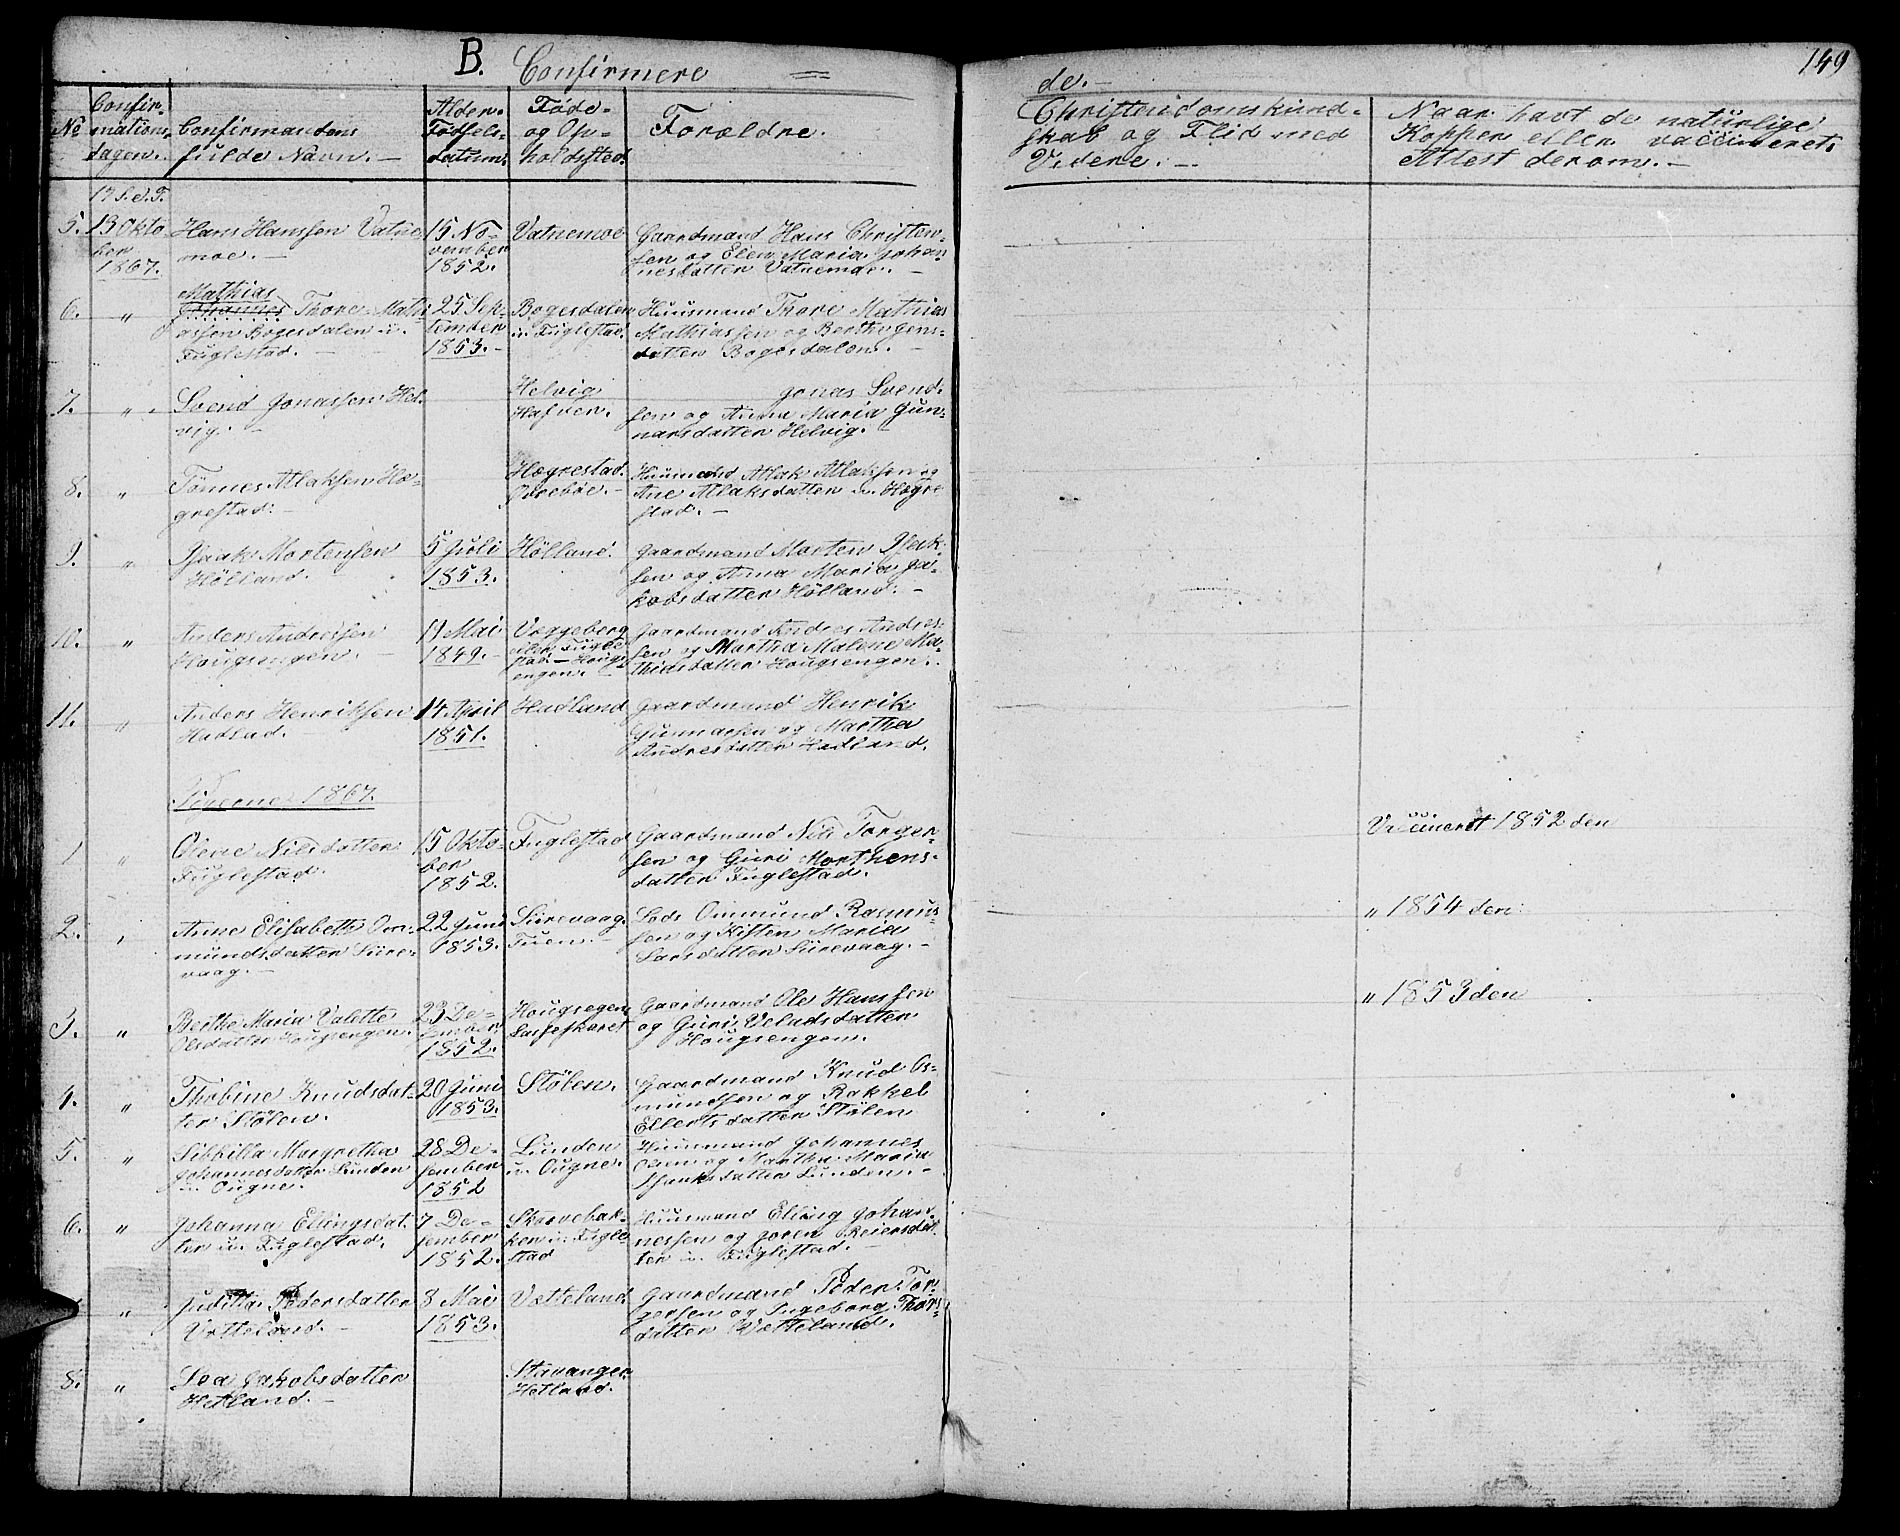 149
B. Confirmere
de.-
No
Confir-
mations
dagen.
Confirmandens
fulde Navn. -
Alder.
Fødsels-
datum.
Føde-
og Op-
holdsted.
Forældre.
Christendomskund-
skab og Flid med
Videre. -
Naar havt de natürlige
Kopper eller vaccineret.
Attest derom. -
17 S. e. T.
5. 13 Okto
ber
1867.
Hans Hanssen Vatne
moe. -
15 No-
vember
1852.
Vatnemoe
Gaardmand Hans Christen-
sen og Elen Maria Johan-
nesdatter Vatnemoe. -
6. "
Mathias
Johannes Thore Mathi
assen Bogesdalen u.
Fuglestad. -
25 Sep-
tember
1853. -
Bogesdalen
u. Fuglestad.
Huusmand Thore Mathias
Mathiassen og Berthe
datter Bogesdalen. -
7. "
Svend Jonassen Hel-
vig. -
Helvig
Hafven.
Jonas Svend-
sen og Anna Maria Gun-
narsdatter Helvig. -
8. "
Tønnes Atlaksen Hæ-
grestad. -
Hægrestad.
Huusmand Atlak Atlaksen og
Ane Atlaksdatter u. Hægre
stad. -
9. "
Isaak Mortensen
Hölland. -
5 Juli
1853.
Hölland.
Gaardmand Morten Isak-
sen og Anna Maria Ja-
kobsdatter Hölland. -
10. "
Anders Andresen
Hougsengen. -
11 Mai
1849. -
Væggeberg
Fugle
stad - Hougs-
engen. -
Gaardmand Andres Andres-
sen og Martha Malene Ma-
thiasdatter Hougsengen.
11. "
Anders Henriksen
Hadlad. -
14 April
1851.
Hadland
Gaardmand Henrik
Gunnarsen og Martha
Andresdatter Hadland.
Pigerne 1867.
1 "
Olene Nilsdatter
Fuglestad.
15 Okto-
ber
1852.
Fuglestad
Gaardmand Nils Torger-
sen og Guri Morthens-
datter Fuglestad.
Vaccineret 1852 den
2. "
Anne Elisabeth Om-
mundsdatter Siire-
vaag. -
22 Juni
1853.
Siirevaag.
Tuen. -
Lods Ommund Rasmus-
sen og Kisten Maria
Larsdatter Siirevaag. -
" 1854 den
3. "
Berthe Maria Valette
Olsdatter Hougsengen.
23 De-
sember
1852.
Hougsegen
Gaardmand Ole Hanssen
og Guri Veladsdatter
Hougsengen.
" 1853 den
4. "
Thobine Knudsdat-
ter Stölen.
20 Juni
1853.
Stölen.
Gaardmand Knud Os-
mundsen og Rakkel
Ellertsdatter Stölen
5. "
Sibbilla Margretha
Johannesdatter Lunden
u. Ougne.
28 De-
sember
1852
Lunden
u. Ougne.
Huusmand Johannes
Olsen og Martha Maria
Isaksdatter Lunden. -
6. "
Johanna Ellingsdat-
ter u. Fuglestad.
7 De-
sember
1852.
Skarvebak-
ken u. Fugle-
stad
Huusmand Elling Johan-
nessen og Joren Reiersdat
ter u. Fuglestad. -
"
Juditta Pedersdatter
Vætteland. -
8 Mai
1853.
Vætteland
Gaardmand Peder Tor-
gersen og Ingeborg Thors-
datter Vætteland.
8. "
Lea Jakobsdatter
Hetland. -
Stavanger
Hetland.